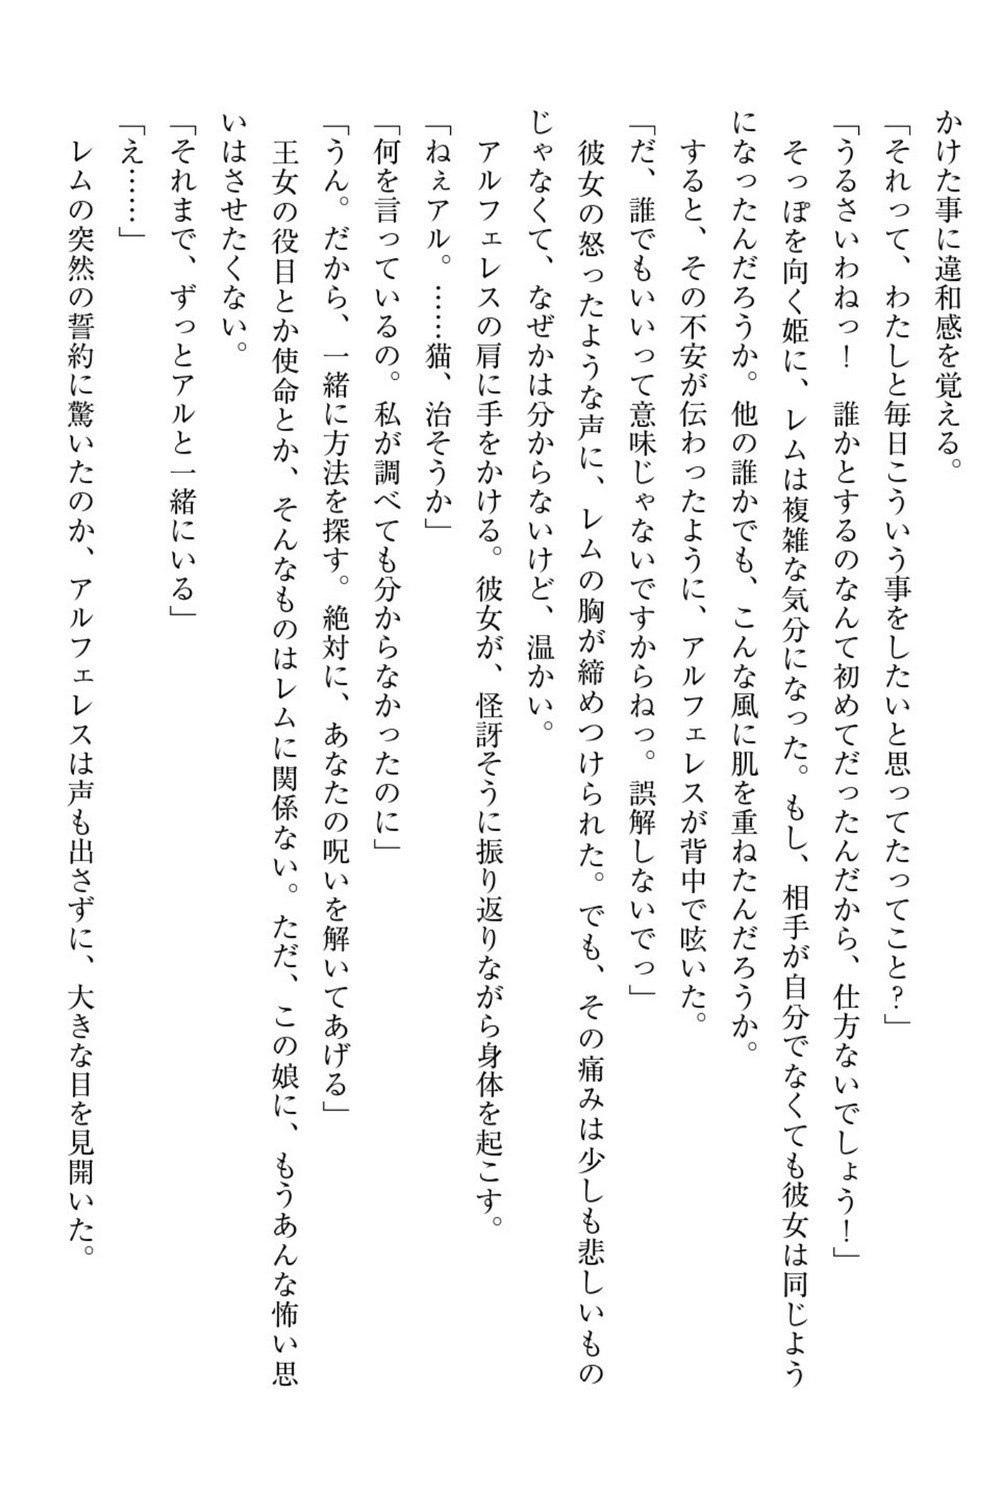 かけた事に違和感を覚える。
「それって、わたしと毎日こういう事をしたいと思ってたってこと？」
「うるさいわねっ！　誰かとするのなんて初めてだったんだから、仕方ないでしょう！」
　そっぽを向く姫に、レムは複雑な気分になった。もし、相手が自分でなくても彼女は同じよう
になったんだろうか。他の誰かでも、こんな風に肌を重ねたんだろうか。
　すると、その不安が伝わったように、アルフェレスが背中で呟いた。
「だ、誰でもいいって意味じゃないですからねっ。誤解しないでっ」
　彼女の怒ったような声に、レムの胸が締めつけられた。でも、その痛みは少しも悲しいもの
じゃなくて、なぜかは分からないけど、温かい。
　アルフェレスの肩に手をかける。彼女が、怪訝そうに振り返りながら身体を起こす。
「ねぇアル。……猫、治そうか」
「何を言っているの。私が調べても分からなかったのに」
「うん。だから、一緒に方法を探す。絶対に、あなたの呪いを解いてあげる」
　王女の役目とか使命とか、そんなものはレムに関係ない。ただ、この娘に、もうあんな怖い思
いはさせたくない。
「それまで、ずっとアルと一緒にいる」
「え……」
　レムの突然の誓約に驚いたのか、アルフェレスは声も出さずに、大きな目を見開いた。